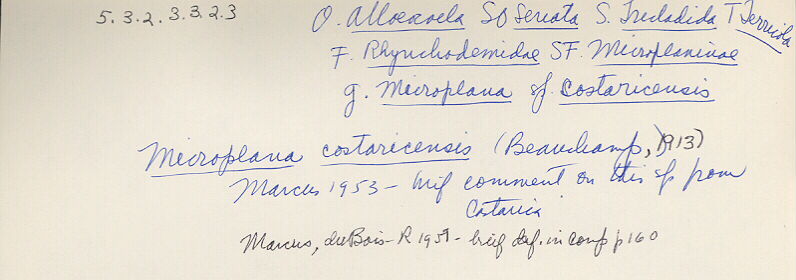 5.3.2.3.3.2.3
O. Alloeocoela SO Seriata S. Tricladida T Terricola
F. Rhynchodemidae SF. Microplaninae
g. Microplana sp. costaricensis
Microplana costaricensis (Beauchamp, 1913)
Marcus 1953 - brief comment on this sp from
Costarica
Marcus, du Bois-R 1951 - brief def. in comp p 160